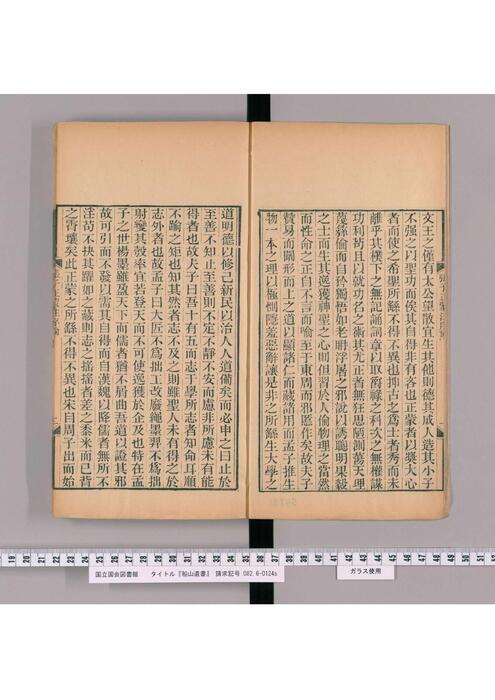 文王之僅有太公望散宜生其他則德其成人造其小子
不强之以聖功而俟其自得非有吝也正蒙者以奬大心
者而使之希聖所繇不得不異也抑古之爲士者秀而未
離乎其樸下之無記誦詞章以取爵祿之科次之無權謀
功利苟且以就功名之術其尤正者無狂思陋測蕩天理
蔑彝倫而自矜獨悟如老聃浮屠之邪說以誘聰明果毅
之士而生其逸獲神聖之心則但習於人倫物理之當然
而性命之正自不言而喻至於東周而邪慝作矣故夫子
贊易而闡形而上之道以顯諸仁而藏諸用而孟子推生
物一本之理以極惻隱羞惡辭讓是非之所繇生大學之
道明德以修己新民以治人人道備矣而必申之曰止於
至善不知止至善則不定不靜不安而慮非所慮未有能
得者也故夫子曰吾十有五而志于學所志者知命耳順
不踰之矩也知其然者志不及之則雖聖人未有得之於
志外者也故孟子曰大匠不爲拙工改廢繩墨羿不爲拙
射變其彀率宜若登天而不可使逸獲於企及也特在孟
子之世楊墨雖盈天下而儒者猶不屑曲吾道以證其邪
故可引而不發以需其自得而自漢魏以降儒者無所不
淫苟不抉其躍如之藏則志之搖搖者差之黍米而已背
之霄壤矣此正蒙之所繇不得不異也宋自周子出而始
国立国会図書館 タイトル『船山遺書』 請求記号 082.6-0124s
ガラス使用
19 20 21 22 23 24 25 26 27 28 29 30 31 32 33 34 35 36 37 42 43 44 45 46 47 48 49 50 51 52